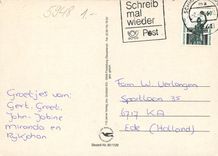 5948 1.-
Schreib
mal
wieder
Post
60
Groetjes van:
Gert. Greet.
John. Jobine
Miranda en
Fam W Verlangen
Sportloon 35
6717 KA
Ede (Holland)